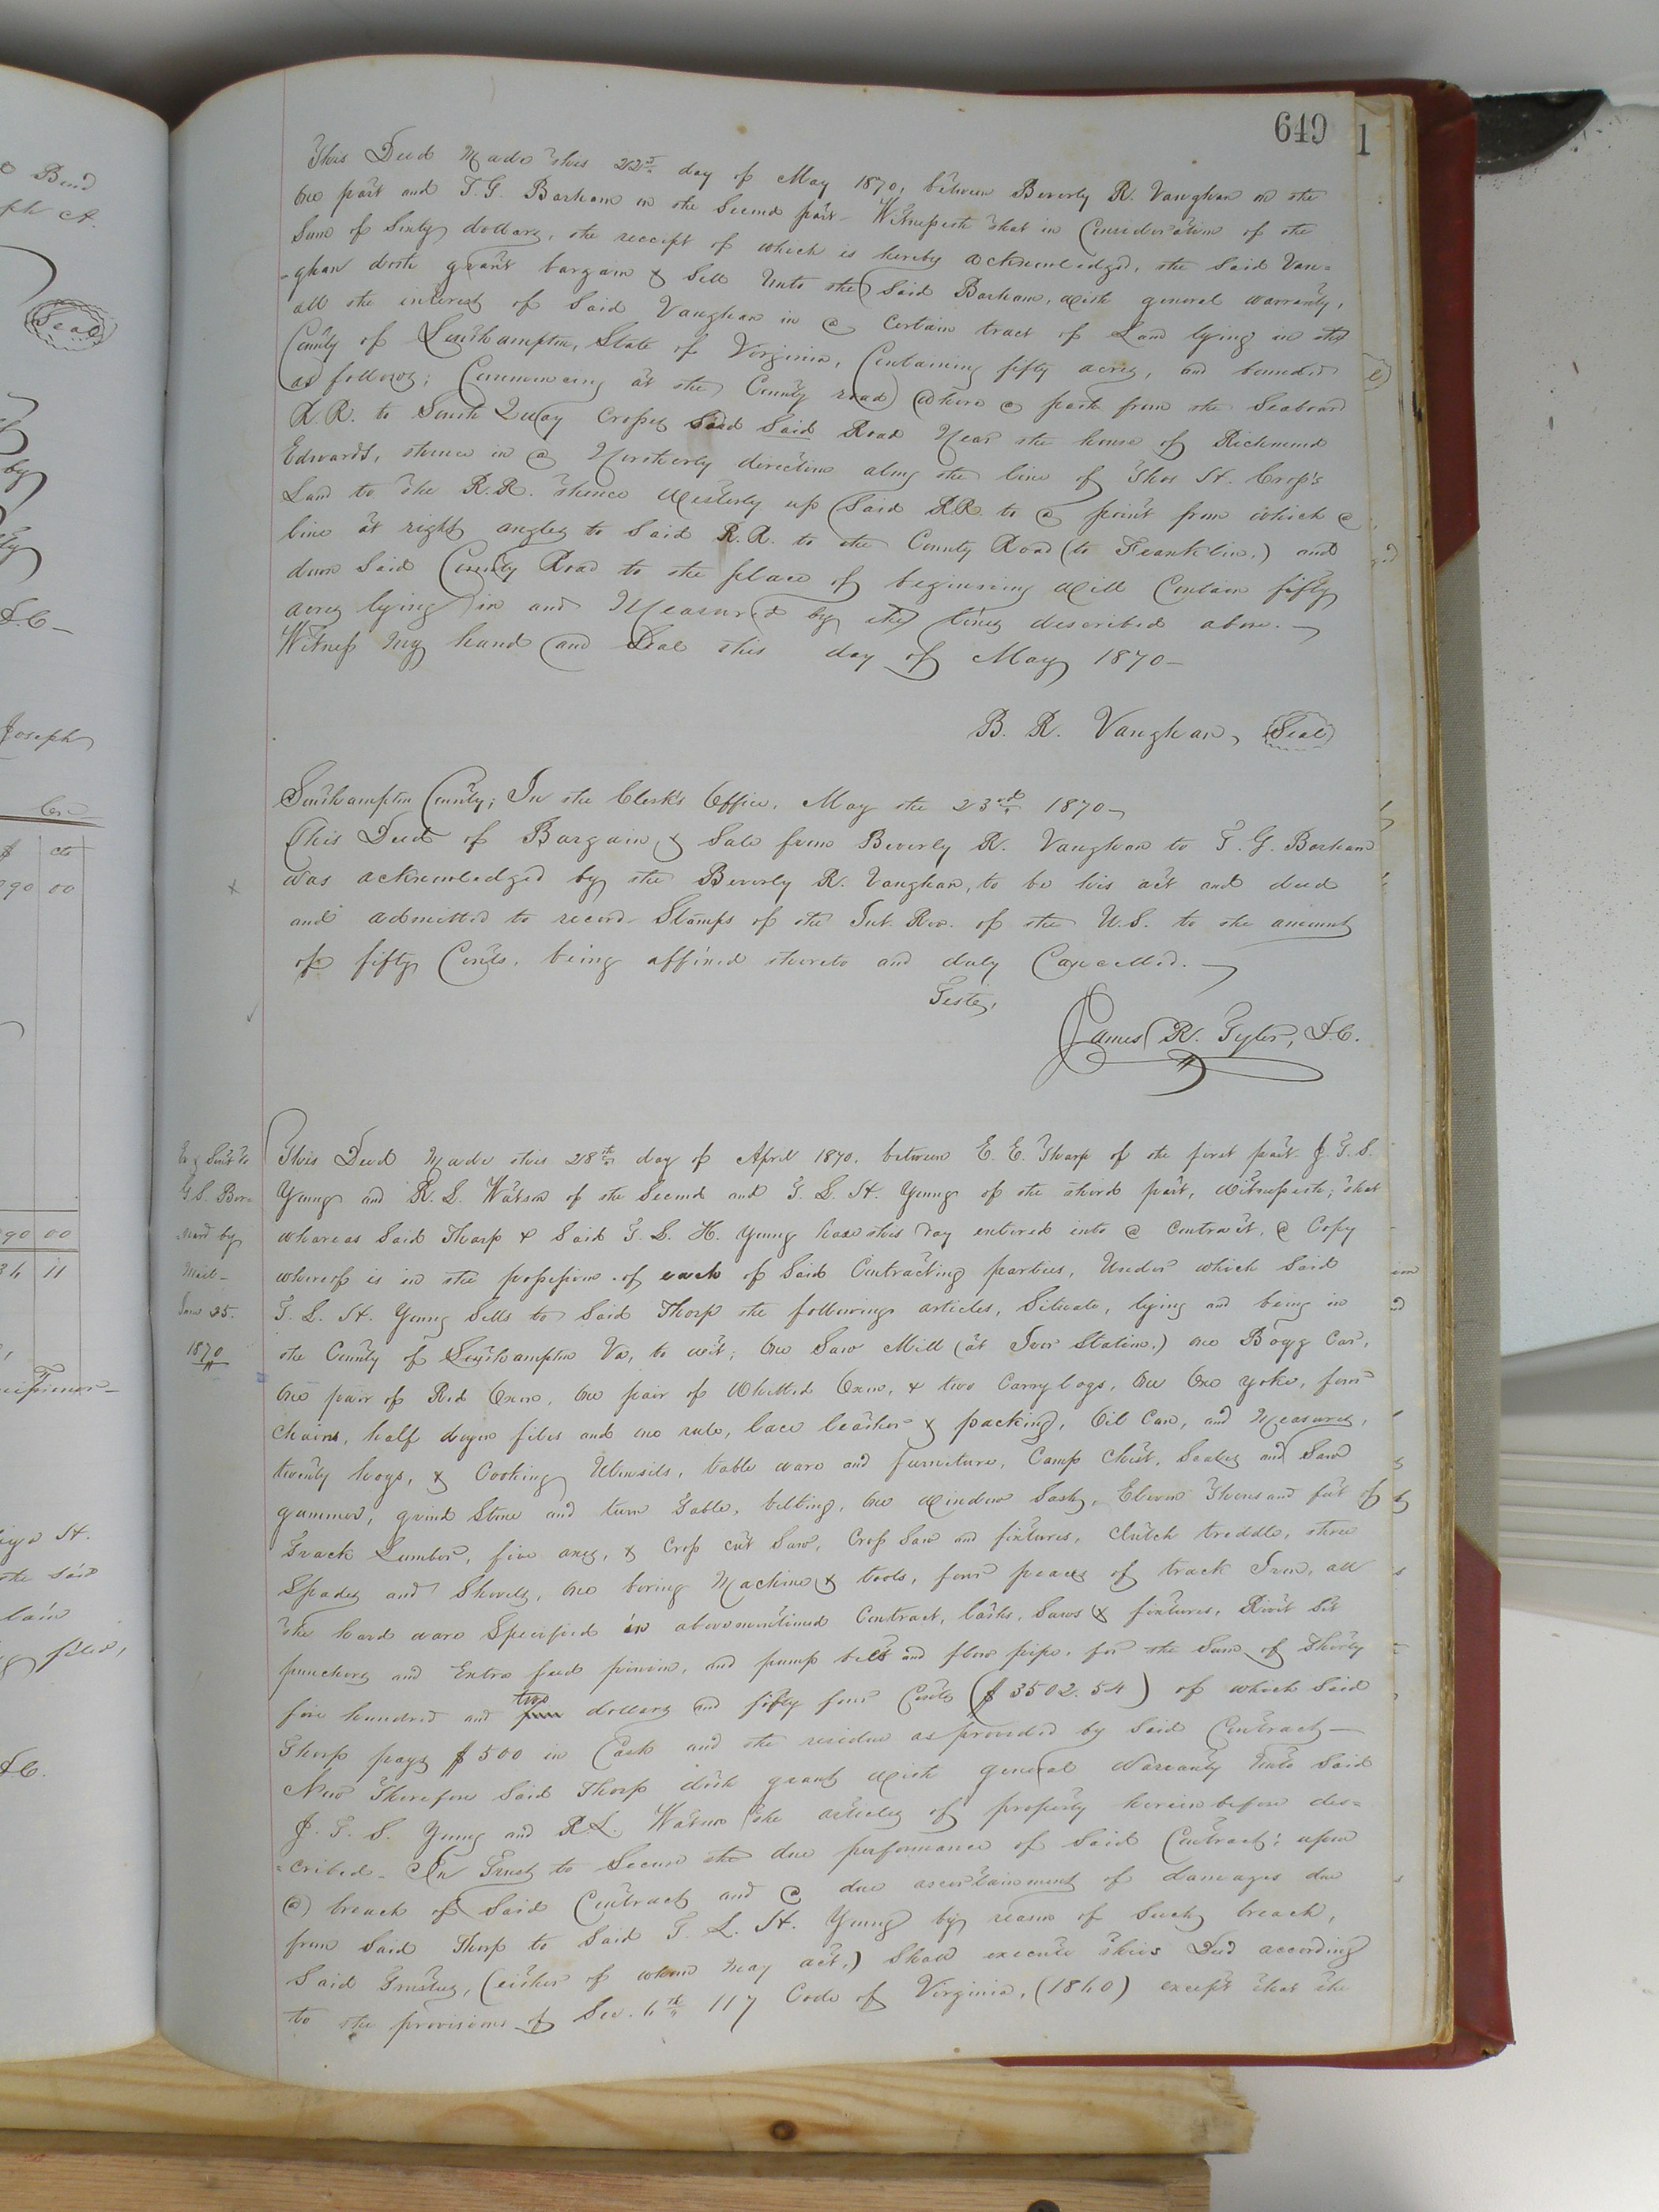 649
1
This Deed Made this 22nd day of May 1870, between Beverly R. Vaughan on the
one part and T. G. Barham on the Second part - Witnesseth that in Consideration of the
Sum of Sixty dollars, the receipt of which is hereby acknowledged, the Said Vau=
-ghan doth grant bargain & Sell Unto the Said Barham, with general warranty,
all the interest of Said Vaughan in a Certain tract of Land lying in the
County of Southampton, State of Virginia, Containing fifty acres, and bounded
as follows; Commencing at the County road where a path from the Seaboard
R.R. to South Quay Crosses Said Road Near the house of Richmond
Edwards, thence in a Northerly direction along the line of Thos H. Crop's
Land to the R.R. thence Westerly up Said R.R. to a point from which a
line at right angles to Said R.R. to the County Road (to Franklin,) and
down Said County Road to the place of beginning will Contain fifty
acres lying in and Measured by the lines described above.
Witness My hand and Seal this day of May 1870-
B. R. Vaughan, Seal
Southampton County; In the Clerk's Office, May the 23rd 1870-
This Deed of Bargain & Sale from Beverly R. Vaughan to T. G. Barham
was acknowledged by the Beverly R. Vaughan, to be his act and deed
and admitted to record- Stamps of the Int. Rev. of the U.S. to the amount
of fifty Cents, being affixed thereto and duly Cancelled.
Teste,
James R. Tyler, D.C.
This Deed Made this 28th day of April 1870, between E. E. Tharp of the first part J. T. S.
Young and R. L. Watson of the Second and T. L. H. Young of the third part, Witnesseth; that
whereas Said Tharp & Said T. L. H. Young have this day entered into a Contract, a Copy
whereof is in the possession of each of Said Contracting parties, Under which Said
T. L. H. Young Sells to Said Tharp the following articles, Situate, lying and being in
the County of Southampton Va, to wit; One Saw Mill (at Ivor Station,) one Bogg Car,
One pair of Red Oxen, One pair of Whitted Oxen, & two Carrylogs, One Oxo yoke, four
Chains, half dozen files and one rule, lace leather & packing, Oil Can, and Measures,
twenty hogs, & Cooking Utensils, table ware and furniture, Camp Chest, Scales and Saw
gummer, grind Stone and turn Table, belting, One Window Sash, Eleven Thousand feet of
Track Lumber, five axes, & Cross cut Saw, Cross Saw and fixtures, Clutch treddle, three
Spades and Shovels, One boring Machine & tools, four peaces of track Iron, all
the hard ware Specified in abovementioned Contract, Saws & fixtures, Rivit Set
punchers and Extra feed pinion, and pump belt and flow pipe, for the Sum of Thirty
five hundred and two dollars and fifty four Cents ($3502.54) of which Said
Tharp pays $500 in Cash and the residue as provided by Said Contract-
Now Therefore Said Tharp doth grant with general Warranty Unto Said
J. T. S. Young and R.L. Watson the articles of property herein before des=
=cribed- In Trust to Secure the due performance of Said Contract; upon
a breach of Said Contract and a due ascertainment of damages due
from Said Tharp to Said T. L. H. Young by reason of Such breach,
Said Trustees, (either of whom may act,) Shall execute this Deed according
to the provisions of Sec. 6th 117 Code of Virginia, (1860) except that the
Sent to
Mail-
1870